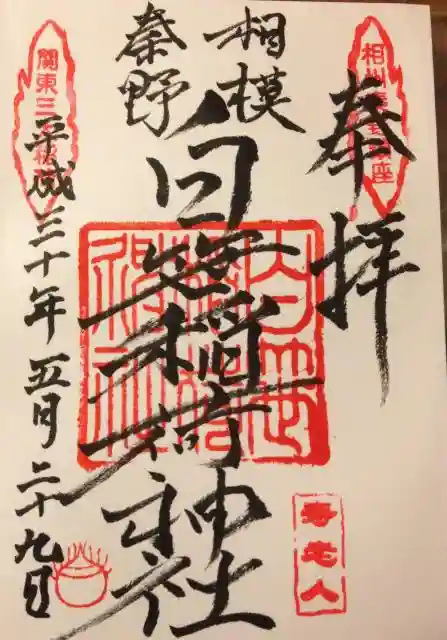 奉拝
相模
秦野
白笹稲荷神社
平成三十年五月二十九日
関東三
相州
鎮座
寿老人